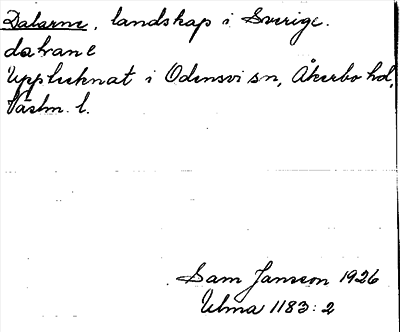 Dalarne, landskap i Sverige.
dalrane
Upptecknat i Odensvi sn, Åkerbo hd,
Västm. l.
Sam Jansson 1926
Ulma 1183:2